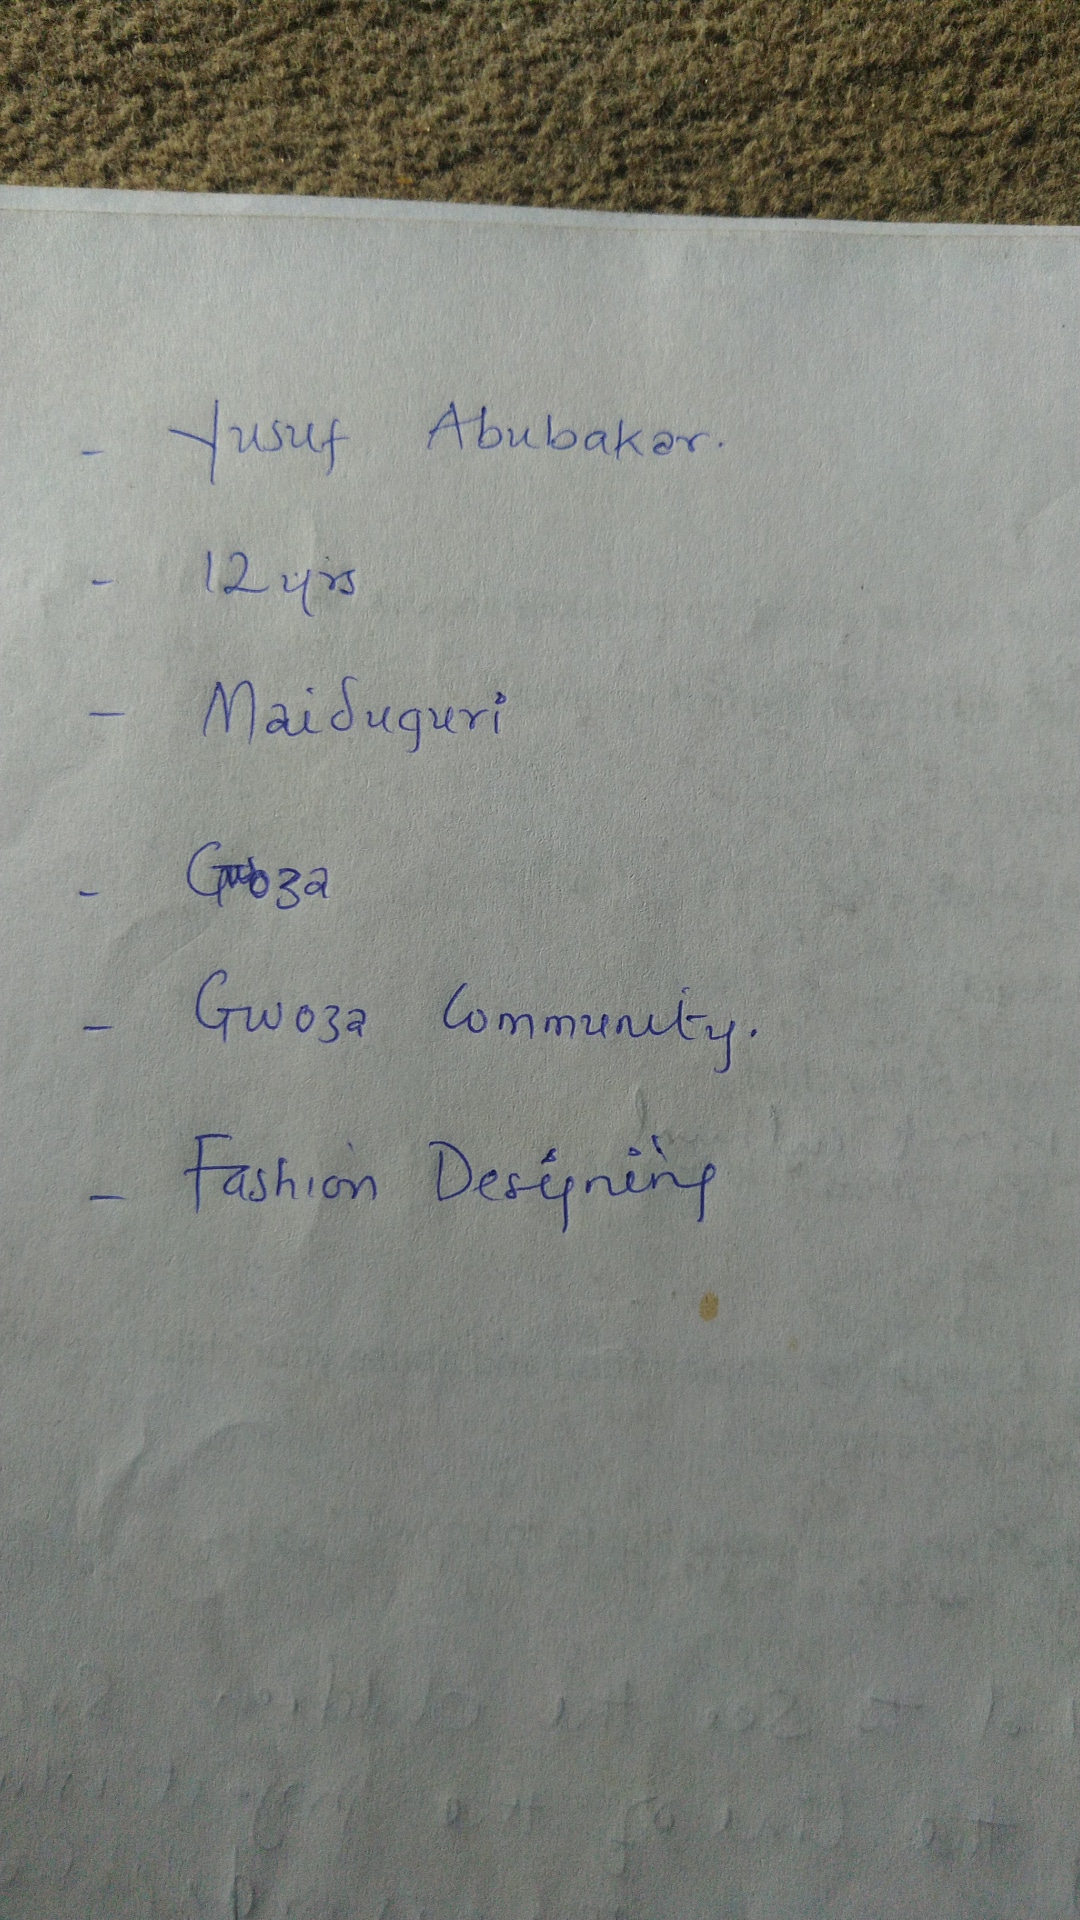 - Yusuf Abubakar.
- 12 yrs
- Maiduguri
- Gwoza
- Gwoza Community.
- Fashion Designing